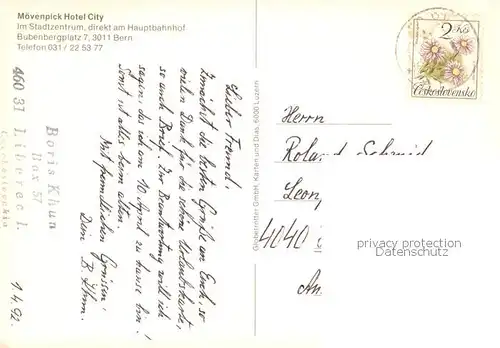 Mövenpick Hotel City
Im Stadtzentrum, direkt am Hauptbahnhof
Bubenbergplatz 7, 3011 Bern
Telefon 031 / 22 53 77
2 Kčs
Československo
Lieber Freund!
Zunächst die besten Grüße an Euch, so
vielen Dank für die schöne Urlaubskarte,
so auch Brief. Zur Beantwortung will ich
sagen, daß ich am 10 April zu Hause bin!
Sonst ist alles beim alten.
Mit freundlichen Grüssen!
Dein B. Khun.
1.4.92.
Boris Khun
Box 57
460 31 Liberec 1.
Czechoslovakia
Globetrotter GmbH, Karten und Dias, 6000 Luzern
Herrn
Roland Schmid
Leon
4040
privacy protection
Datenschutz